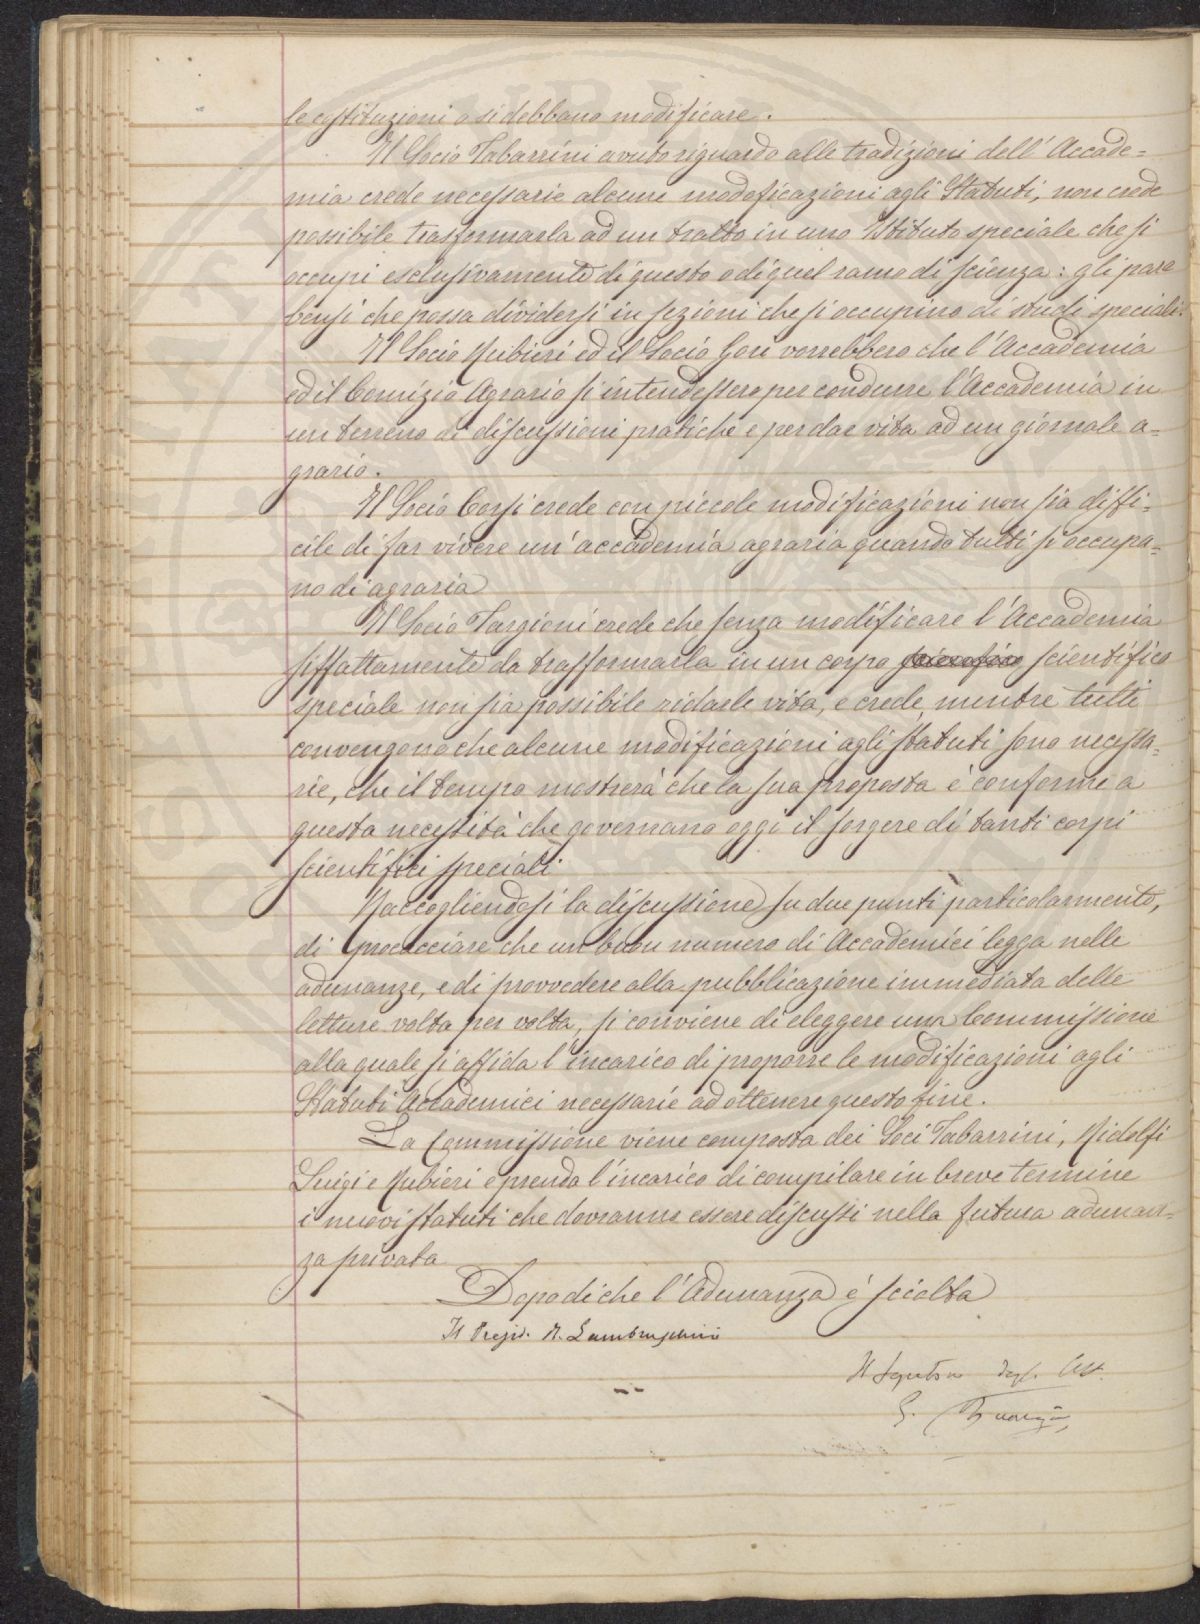 le costituzioni o si debbano modificare.
Il Socio Tabarrini avuto riguardo alle tradizioni dell'Accade=
mia crede necessarie alcune modoficazioni agli Statuti, non crede
possibile trasformarla ad un tratto in uno Istituto speciale che si
occupi esclusivamente di questo o di quel ramo di scienza: gli pare
bensì che possa dividersi in sezioni che si occupino di studi speciali.
Il Socio Rubieri ed il Socio Gori vorrebbero che l'Accademia
ed il Comizio Agrario si intendessero per condurre l'Accademia in
un terreno di discussioni pratiche e per dar vita ad un giornale a=
grario.
Il Socio Corsi crede con piccole modificazioni non sia diffi=
cile di far vivere un'accademia agraria quando tutti s'occupa=
no di agraria
Il Socio Targioni crede che senza modificare l'Accademia
siffattamente da trasformarla in un corpo scientifico
speciale non sia possibile ridarle vita, e crede, mentre tutti
convengono che alcune modificazioni agli statuti sono necessa=
rie, che il tempo mostrerà che la sua proposta è conforme a
questa necessità che governano oggi il sorgere di tanti corpi
scientifici speciali
Raccogliendosi la discussione su due punti particolarmente,
di procacciare che un buon numero di Accademici legga nelle
adunanze, e di provvedere alla pubblicazione immediata delle
letture volta per volta, si conviene di eleggere una Commissione
alla quale si affida l'incarico di proporre le modificazioni agli
Statuti Accademici necessarie ad ottenere questo fine.
La Commissione viene composta dei Soci Tabarrini, Ridolfi
Luigi e Rubieri e prenda l'incarico di compilare in breve termine
i nuovi statuti che dovranno essere discussi nella futura adunan=
za privata
Dopo di che l'Adunanza è sciolta
Il Presid. R. Lambruschini
Il Segretario degli Att.